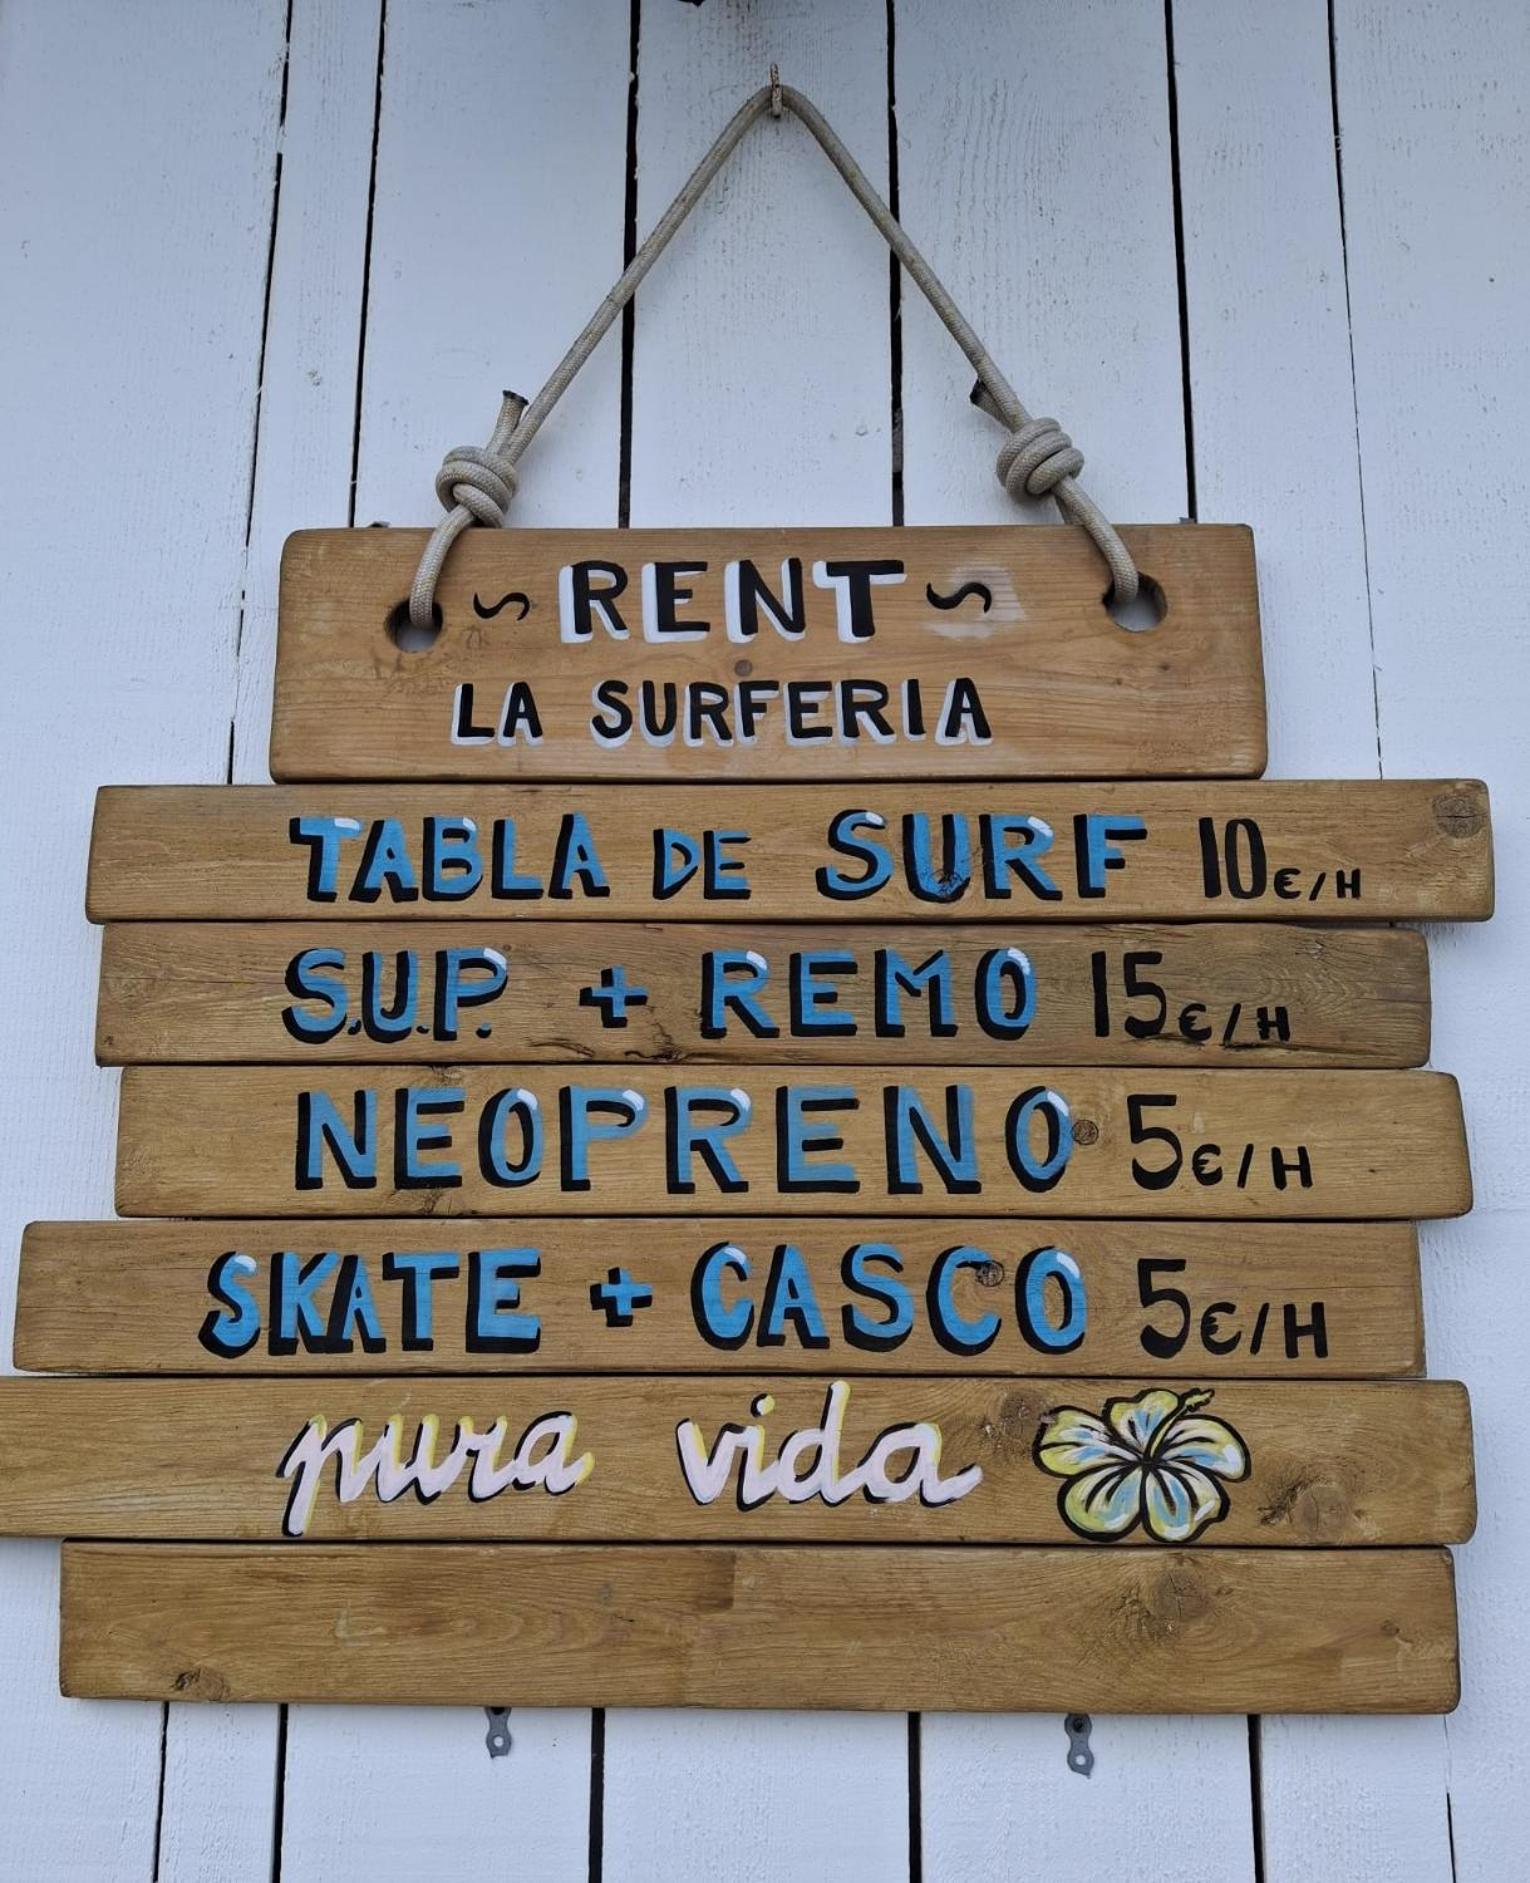 ~ RENT ~
LA SURFERIA
TABLA DE SURF 10€/H
S.U.P. + REMO 15€/H
NEOPRENO 5€/H
SKATE + CASCO 5€/H
pura vida